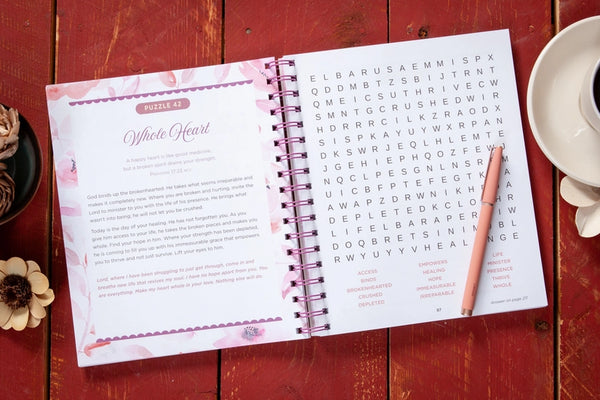 PUZZLE 42
Whole Heart
A happy heart is like good medicine,
but a broken spirit drains your strength.
Proverbs 17:22
God binds up the brokenhearted. He takes what seems irreparable and
makes it completely new. Where you are broken and hurting, invite the
Lord to minister to you with the life of his presence. He brings what
wasn't into being; he will not let you be crushed.
Today is the day of your healing. He has not forgotten you. As you
give him access to your life, he takes the broken pieces and makes you
whole. Find your hope in him. Where your strength has been depleted,
he is coming to fill you with his immeasurable grace that empowers
you to thrive and not just survive. Lift your eyes to him.
Lord, where I have been struggling to just get through, come in and
breathe new life that revives my soul. I have no hope apart from you. You
are everything. Make my heart whole in your love. Nothing else will do.
E L B A R U S A E M M I S P X
Q D D M B T Z S B I J T R N T
Q M E I C S U T H R I V E C W
S M N T G C R U S H E D W I R
H D R R R C I L K Z R A O D X
S I S P K A Y U Y W X R P A N
D K S W R J E Q L H L E M T E
J G E H I E P H Q O Z F E W
N Q C L P E S G N L N S R
U I C B F P T E E F G T K
A W A P Z D R W N I K H
D E P L E T E D C L O R
L I F E L B A R A P E R
D O Q B R E T S I N I M
R W Y U Y Y V H E A L I N G E
ACCESS
BINDS
BROKENHEARTED
CRUSHED
DEPLETED
EMPOWERS
HEALING
HOPE
IMMEASURABLE
IRREPARABLE
LIFE
MINISTER
PRESENCE
THRIVE
WHOLE
87
Answer on page